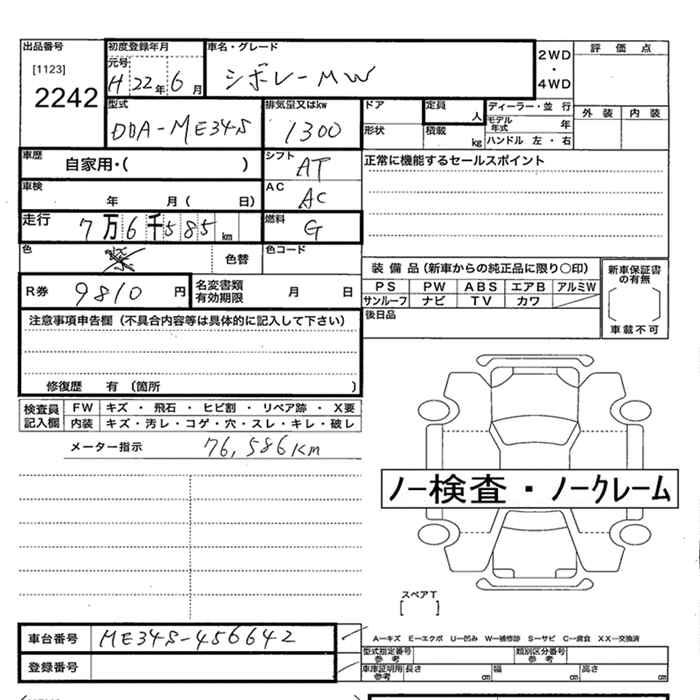 出品番号
[1123]
2242
初度登録年月
元号
H 22年 6月
車名・グレード
シボレーMW
2WD
・
4WD
評 価 点
外 装 内 装
型式
DBA-ME34S
排気量又はkw
1300
ドア
形状
定員
人
積載
kg
ディーラー・並 行
モデル年式 年
ハンドル 左・右
車歴
自家用・( )
シフト
AT
正常に機能するセールスポイント
車検
年 月( 日)
AC
AC
走行
7万6千585km
燃料
G
色
色替
色コード
装 備 品(新車からの純正品に限り〇印)
PS PW ABS エアB アルミW
サンルーフ ナビ TV カワ
新車保証書の有無
車載不可
R券
9810円
名変書類有効期限
月 日
後日品
注意事項申告欄(不具合内容等は具体的に記入して下さい)
修復歴 有(箇所 )
検査員記入欄
FW キズ・飛石・ヒビ割・リペア跡・X要
内装 キズ・汚レ・コゲ・穴・スレ・キレ・破レ
メーター指示
76,586Km
ノー検査・ノークレーム
スペアT
[ ]
車台番号
ME34S-456642
登録番号
A―キズ E―エクボ U―凹み W―補修跡 S―サビ C―腐食 XX―交換済
型式指定番号
参考
類別区分番号
参考
車庫証明用
参考
長さ cm
幅 cm
高さ cm